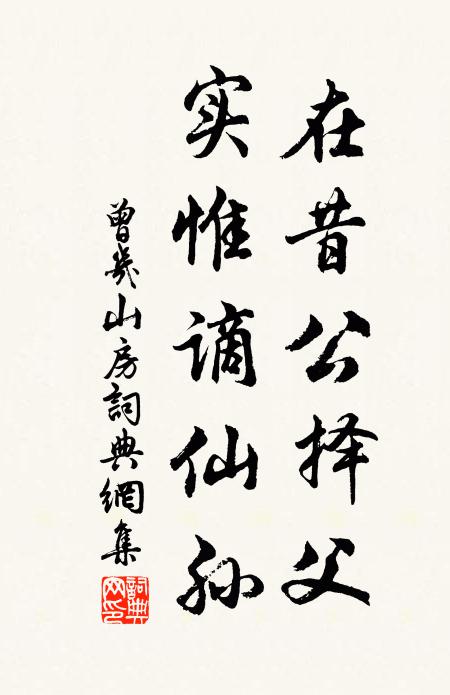 在昔公择父
实惟谪仙孙
曾幾山房詞典網集
詞典网印